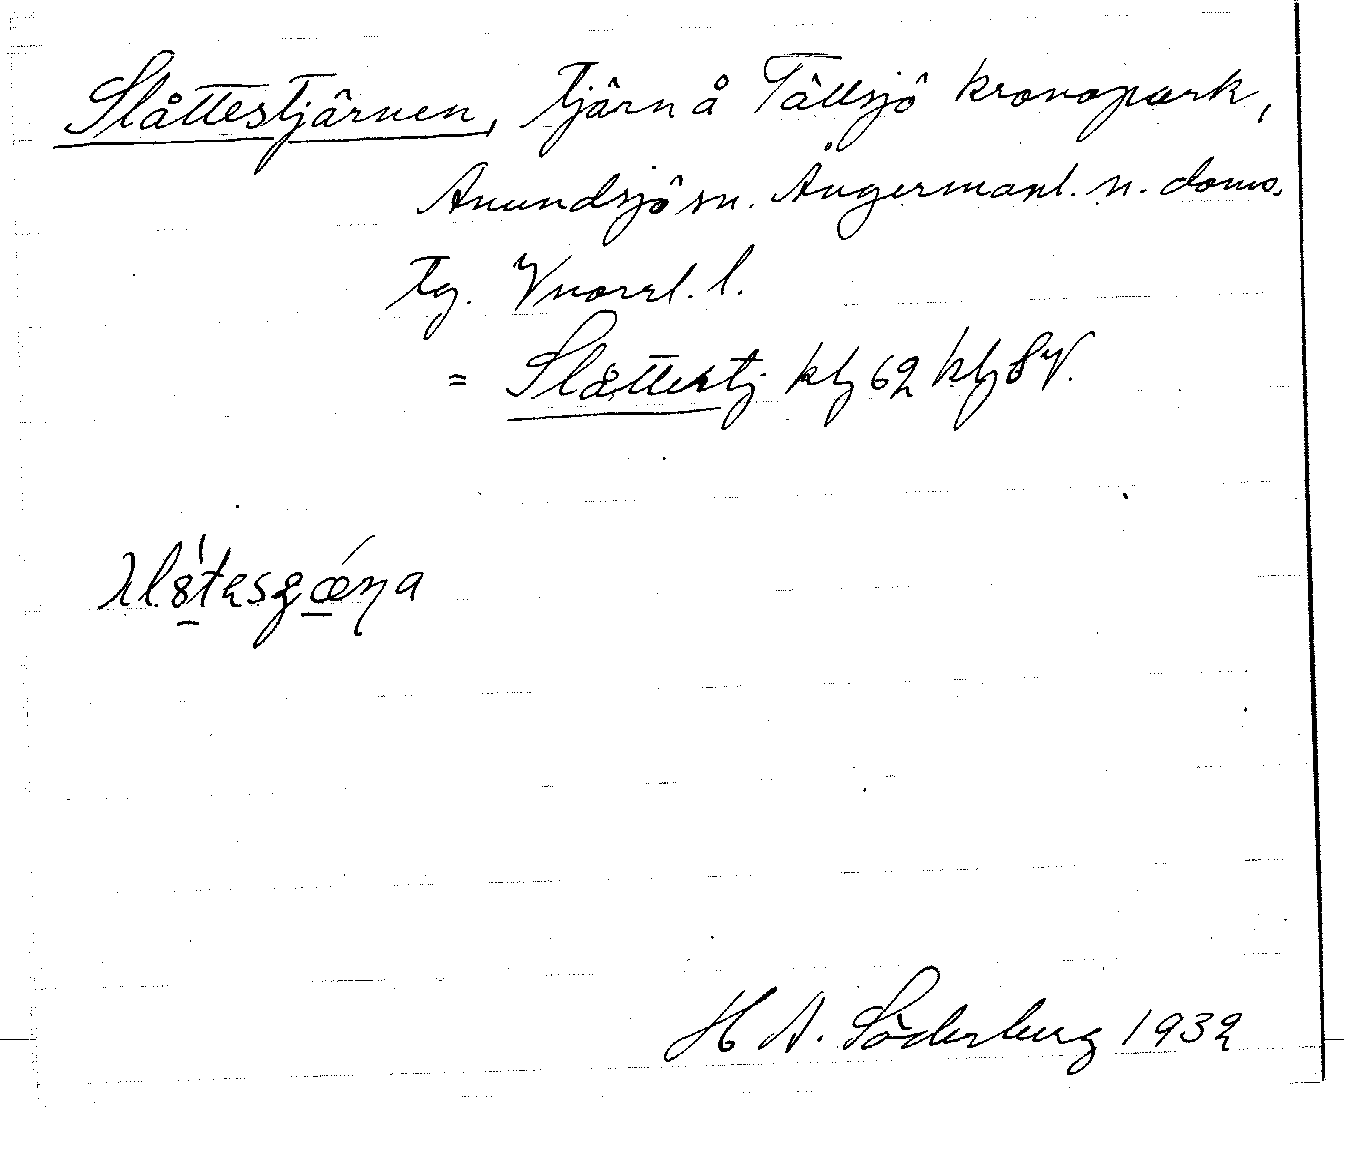 Slåttestjärnen, tjärn å Tällsjö kronopark,
Anundsjö sn. Ångermanl. n. doms.
tg. Vnorrl. l.
= Slåttestj kbl 62 kbl SV.
H A. Söderberg 1932